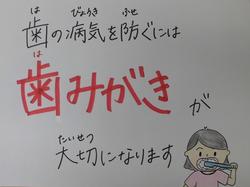 は びょうき ふせ
歯の病気を防ぐには
は
歯みがき が
たいせつ
大切になります